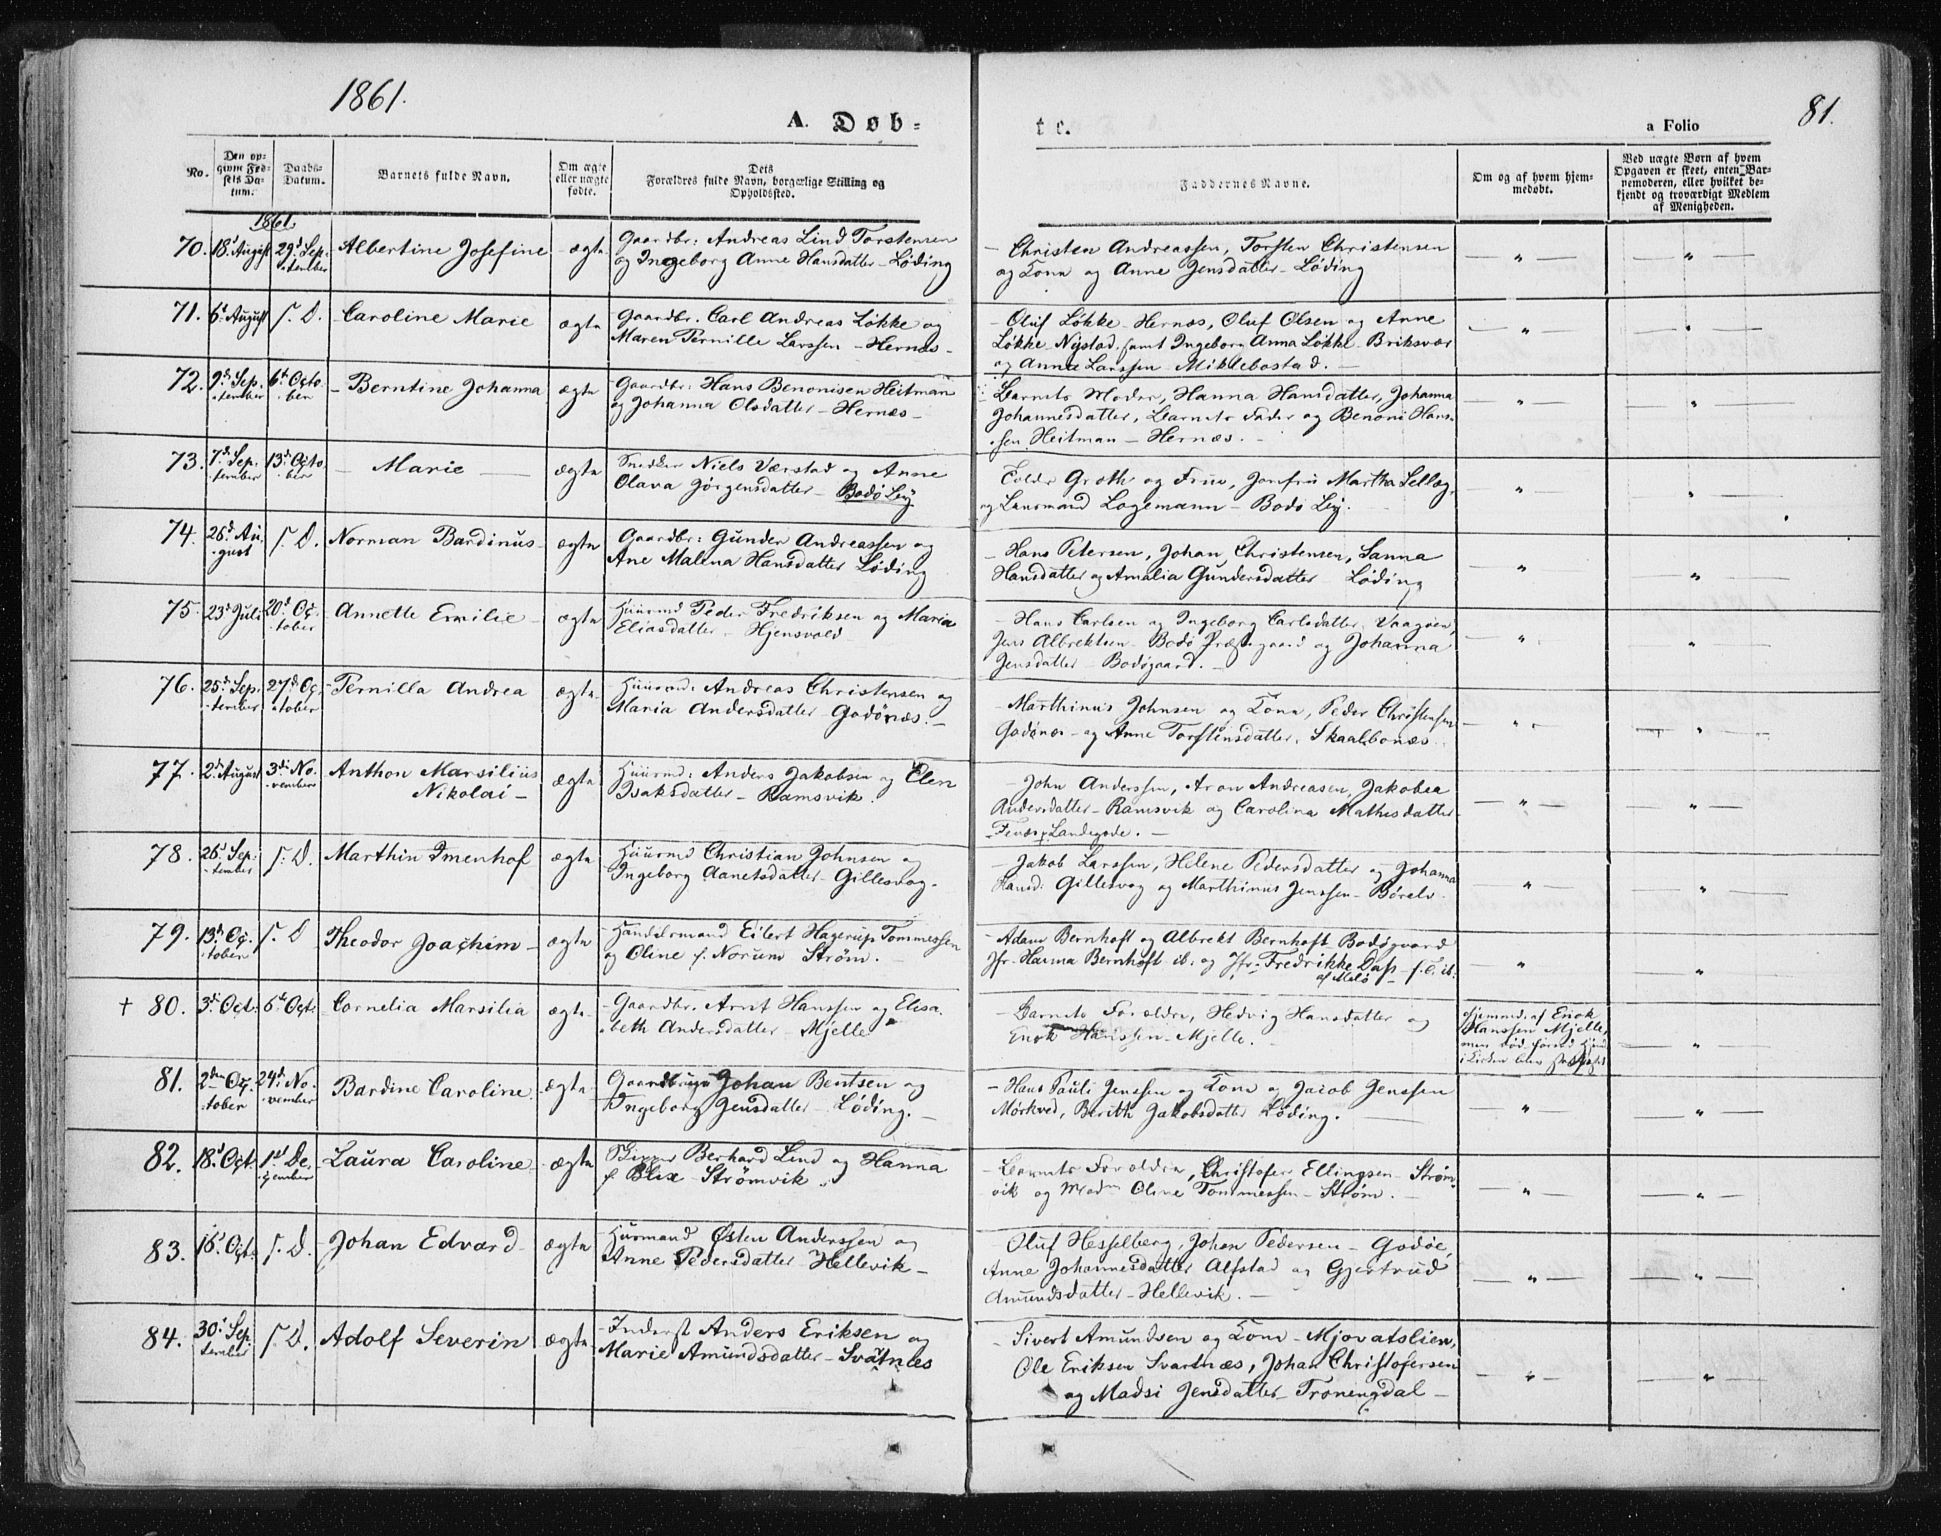 1861.
A. Døb-
te.
a Folio
81.
No.
Den opgivne Fødsels Datum.
Daabs-Datum.
Barnets fulde Navn.
Om ægte eller uægte fødte.
Dets Forældres fulde Navn, borgerlige Stilling og Opholdssted.
Faddernes Navne.
Om og af hvem hjemmedøbt.
Ved uægte Børn af hvem Opgaven er skeet, enten Barnemoderen, eller hvilket bekjendt og troværdigt Medlem af Menigheden.
1861.
70. 18d August 29d September Albertine Josefine ægte Gaardbr: Andreas Lind Torstensen
og Ingeborg Anne Hansdatter - Løding
- Christen Andreassen, Torsten Christensen
og Kone og Anne Jensdatter - Løding
71. 6d August s. D. Caroline Marie ægte Gaardbr. Carl Andreas Løkke og
Maren Pernille Larssen - Hernæs -
- Oluf Løkke - Hernæs, Oluf Olsen og Anne
Løkke Nystad, samt Ingeborg Anna Løkke - Briksvær
og Anne Larssen Miklebostad. -
72. 9d September 6d October Berntine Johanna ægte Gaardbr: Hans Benonisen Heitman
og Johanna Olsdatter - Hernæs -
Barnets Moder, Hanna Hansdatter, Johanna
Johannesdatter, Barnets Fader og Benoni Hans-
sen Heitman - Hernæs. -
73. 7d September 13d October Marie ægte Snedker Niels Værstad og Anne
Olava Jørgensdatter - Bodø Bÿ
og Lensmand Lagemann - Bodø Bÿ.
74. 26d August s. D. Norman Bardinus ægte Gaardbr: Gunder Andreassen og
Ane Malena Hansdatter Løding
- Hans Petersen, Johan Christensen, Sanna
Hansdatter og Amalia Gundersdatter Løding
75. 23d Juli 20d October Annette Emilie ægte Huusmd Peder Fredriksen og Maria
Eliasdatter - Hjensvold
- Hans Carlsen og Ingeborg Carlsdatter, Vaagøen,
Jens Albrektsen Bodø Præstegaard og Johanna
Jensdatter - Bodøgaard. -
76. 25d September 27d October Pernilla Andrea ægte Huusmd: Andreas Christensen og
Maria Andersdatter - Godønæs. -
- Marthinus Johnsen og Kone, Peder Christensen
Godønæs - og Anne Torstensdatter, Skaalbonæs.
77. 2d August 3d November Anthon Marsilius Nikolai - ægte Huusmd: Anders Jakobsen og Elen
Isaksdatter - Ramsvik.
- John Anderssen, Aron Andreasen, Jakobea
Andersdatter - Ramsvik og Carolina Mathisdatter
Fenæs p. Landegode. -
78. 26d September s. D. Marthin Imenhof ægte Huusmd Christian Johnsen og
Ingeborg Aanetsdatter - Gillesvog.
- Jakob Larssen, Helene Pedersdatter og Johanna
Hansd: Gillesvog og Marthinus Jenssen - Børelv.
79. 13d October s. D Theodor Joachim - ægte - Handelsmand Eilert Hagerup Tommessen
og Oline f. Norum Strøm. -
- Adam Bernhoft og Albrekt Bernhoft - Bodøgaard
Jfr. Hanna Bernhoft ib: og Jfr: Fredrikke Dass
af Melø
† 80. 3d Oct: 6d Oct: Cornelia Marsilia ægte - Gaardbr. Arnt Hanssen og Elisa-
beth Andersdatter - Mjelle
- Barnets Forældre, Hedvig Hansdatter og
Enok Hanssen - Mjelle.
Hjemmed. af Enok
Hanssen Mjelle,
81. 2den October 24d November Bardine Caroline ægte Gaardbruger Johan Bentsen og
Ingeborg Jensdatter - Løding. -
- Hans Pauli Jenssen og Kone og Jacob Jenssen
Mørkved, Berith Jakobsdatter Løding.
82. 18d Oct. 1st December Laura Caroline ægte Berhard Lind og Hanna
f. Blix - Strømvik.
- Barnets Forældre, Christofer Ellingsen Strøm-
vik og Madm Oline Tommessen - Strøm. -
83. 16d Oct. s. D. Johan Edvard ægte Husmand Østen Anderssen og
Anne Pedersdatter Hellevik -
Oluf Hesselberg, Johan Pedersen - Godøe,
Anne Johannesdatter Alfstad og Gjertrud
Amundsdatter - Hellevik. -
84. 30d September s. D. Adolf Severin ægte - Inderst Anders Eriksen og
Marie Amundsdatter - Svatnes
- Sivert Amundsen og Kone - Mjovatslien,
Ole Eriksen Svartnæs, Johan Christofersen
og Madsi Jensdatter - Tronengdal -